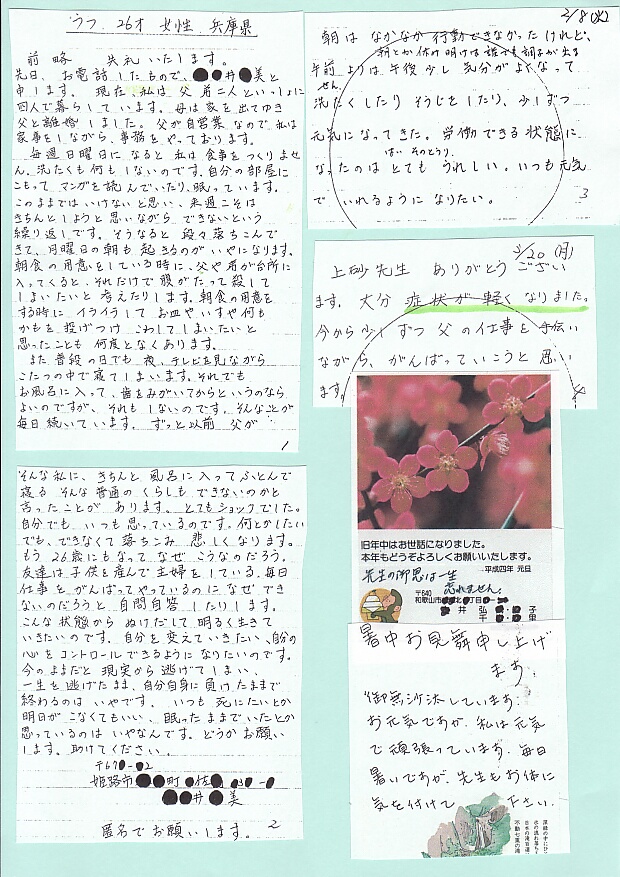 うつ 26才 女性 兵庫県
前略 失礼いたします。
先日、お電話したもので、●●井●美と
申します。現在、私は父弟二人といっしょに
四人で暮らしています。母は家を出てゆき
父と離婚しました。父が自営業なので私は
家事をしながら、事務をやっております。
毎週日曜日になると私は食事をつくりませ
ん。洗たくも何もしないのです。自分の部屋に
こもってマンガを読んでいたり、眠っています。
このままではいけないと思い、来週こそは
きちんとしようと思いながらできないという
繰り返しです。そうなると段々落ちこんで
きて、月曜日の朝も起きるのがいやになります。
朝食の用意をしている時に、父や弟が台所に
入ってくると、それだけで腹がたって殺して
しまいたいと考えたりします。朝食の用意を
する時にイライラしてお皿やいすや何も
かもを投げつけこわしてしまいたいと
思ったことも何度となくあります。
また普段の日でも夜、テレビを見ながら
こたつの中で寝てしまいます。それでも
お風呂に入って、歯をみがいてからというのなら
よいのですが、それもしないのです。そんなことが
毎日続いています。ずっと以前、父が
1
そんな私に、きちんと風呂に入ってふとんで
寝る そんな普通のくらしもできないのかと
言ったことがあります。とてもショックでした。
自分でもいつも思っているのです。何とかしたい
でも、できなくて落ちこみ悲しくなります。
もう26歳にもなってなぜこうなのだろう。
友達は子供を産んで主婦をしている。毎日
仕事をがんばってやっているのになぜでき
ないのだろうと、自問自答したりします。
こんな状態からぬけだして、明るく生きて
いきたいのです。自分を変えていきたい、自分の
心をコントロールできるようになりたいのです。
今のままだと現実から逃げてしまい、
一生を逃げたまま、自分自身に負けたままで
終わるのはいやです。いつも死にたいとか
明日がこなくてもいい、眠ったままでいたいとか
思っているのはいやなんです。どうかお願い
します。助けてください。
姫路市●●町
●●井●美
匿名でお願いします。 2
3/8(水)
朝はなかなか行動できなかったけれど、
午前よりは午後少し気分がよくなって
洗たくしたりそうじとしたり、少しずつ
元気になってきた。労働できる状態に
なったのはとてもうれしい。いつも元気
でいれるようになりたい。
3
3/20(月)
上砂先生 ありがとうござい
ます。大分症状が軽くなりました。
今から少しずつ父の仕事を手伝い
ながら、がんばっていこうと思い
ます。
4
旧年中はお世話になりました。
本年もどうぞよろしくお願いいたします。
平成四年 元旦
先生の御恩は一生
忘れません。
〒640
和歌山市●●北●丁目
井 弘 子
千 里
暑中お見舞申し上げ
ます。
御無沙汰しています。
お元気ですが、私は元気
で頑張っています。毎日
暑いですが、先生もお体に
気を付けて下さい。
不動七重の滝